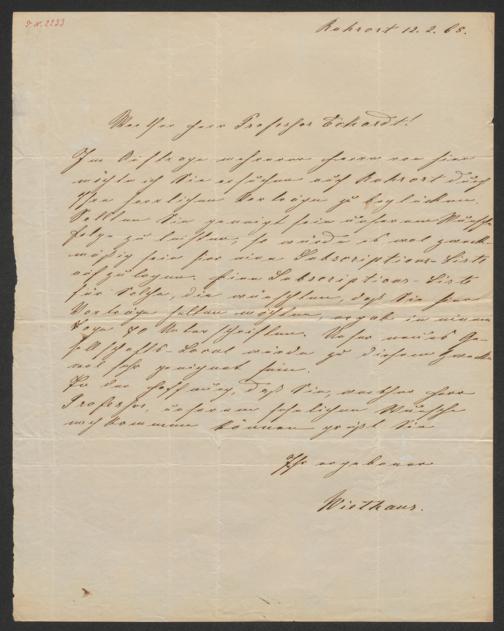 I. N. 2233
Ruhrort 12. 2. 68.
Werther Herr Professor Eckardt!
Im Auftrage mehrerer Herren von hier
möchte ich Sie ersuchen auch Ruhrort durch
Ihre herrlichen Vorträge zu beglücken.
Sollten Sie geneigt sein unserem Wunsche
Folge zu leisten, so würde es wol zweck-
mäßig sein hier eine Subscriptions-Liste
aufzulegen. Eine Subscriptions-Liste
für Solche, die wünschten, daß Sie hier
Vorträge halten möchten, ergab in einem
Tage 70 Unterschriften. Unser neues Ge-
sellschafts-Local würde zu diesem Zwecke
wol sehr geeignet sein.
In der Hoffnung, daß Sie, werther Herr
Professor, unserem sehnlichen Wunsche
nachkommen können grüßt Sie
Ihr ergebener
Wiethaus.